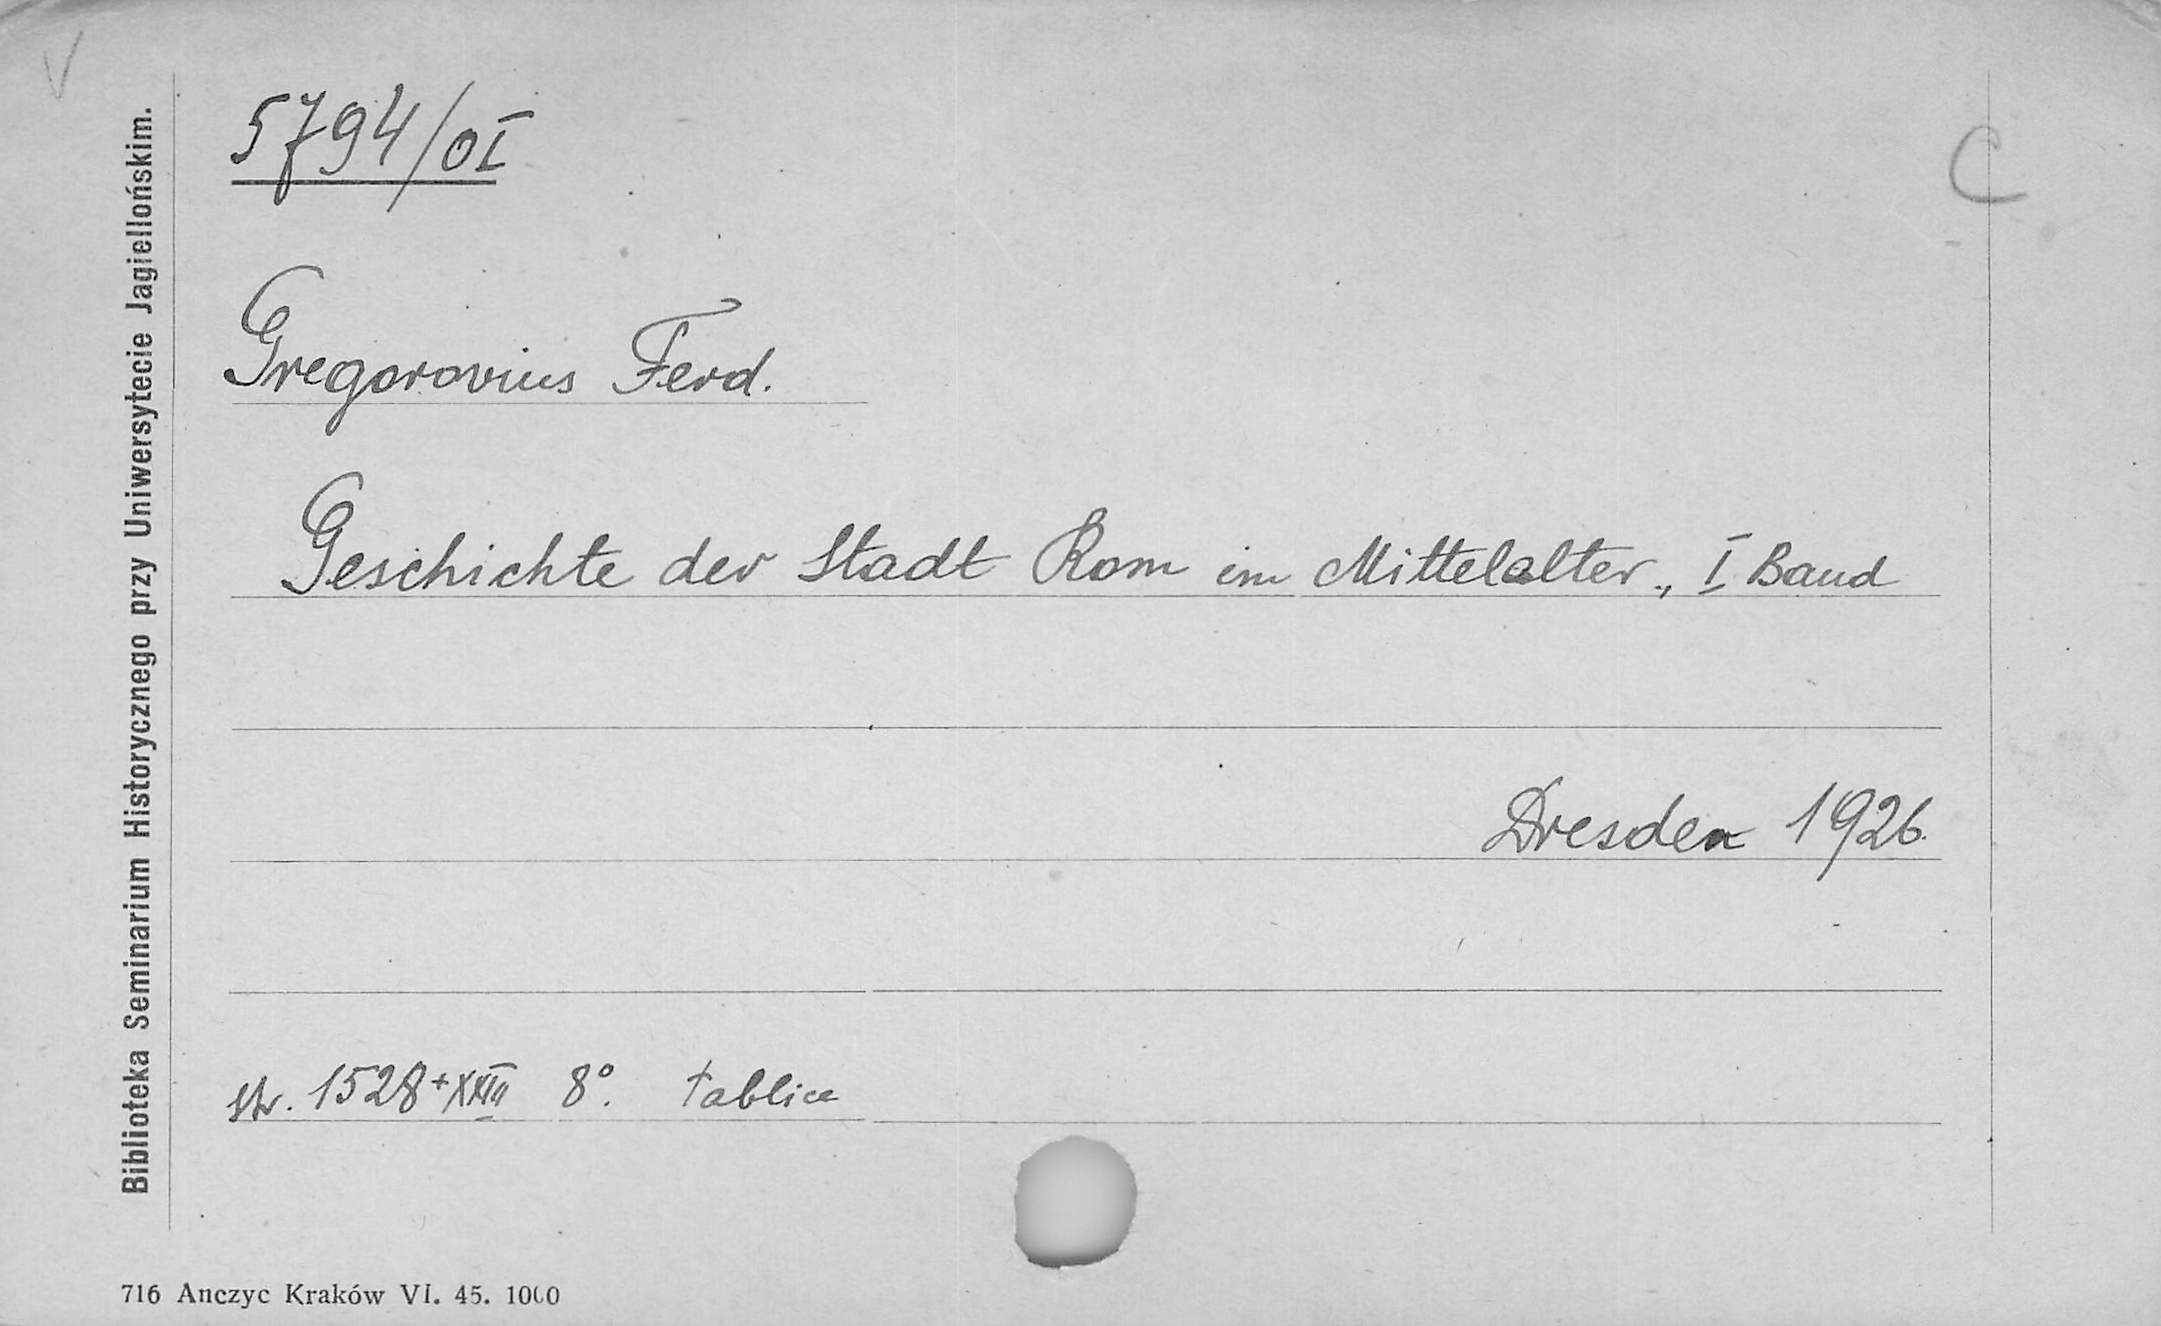 V
5794/0I
C
Gregorovius Ferd.
Geschichte der Stadt Rom im Mittelalter., I Band
Dresden 1926.
str. 1528+XXIII 8°. tablice
Biblioteka Seminarium Historycznego przy Uniwersytecie Jagiellońskim.
716 Anczyc Kraków VI. 45. 1000